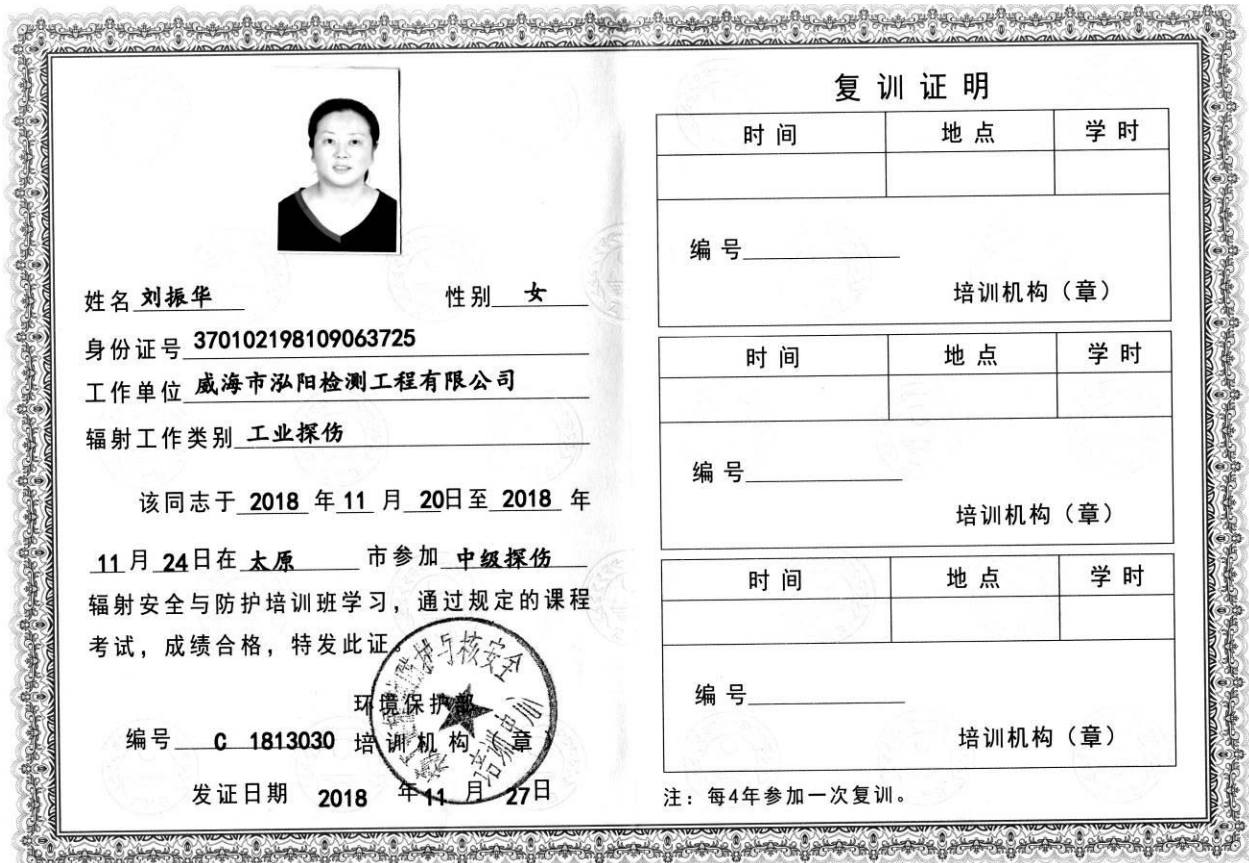 姓名 刘振华 性别 女
身份证号 370102198109063725
工作单位 威海市泓阳检测工程有限公司
辐射工作类别 工业探伤
该同志于 2018 年 11 月 20日至 2018 年
11 月 24日在 太原 市参加 中级探伤
辐射安全与防护培训班学习，通过规定的课程
考试，成绩合格，特发此证
环境保护部
编号 C 1813030 培训机构（章）
发证日期 2018 年 11 月 27日
与核安全
复训证明
时间 地点 学时
编号
培训机构（章）
时间 地点 学时
编号
培训机构（章）
时间 地点 学时
编号
培训机构（章）
注：每4年参加一次复训。